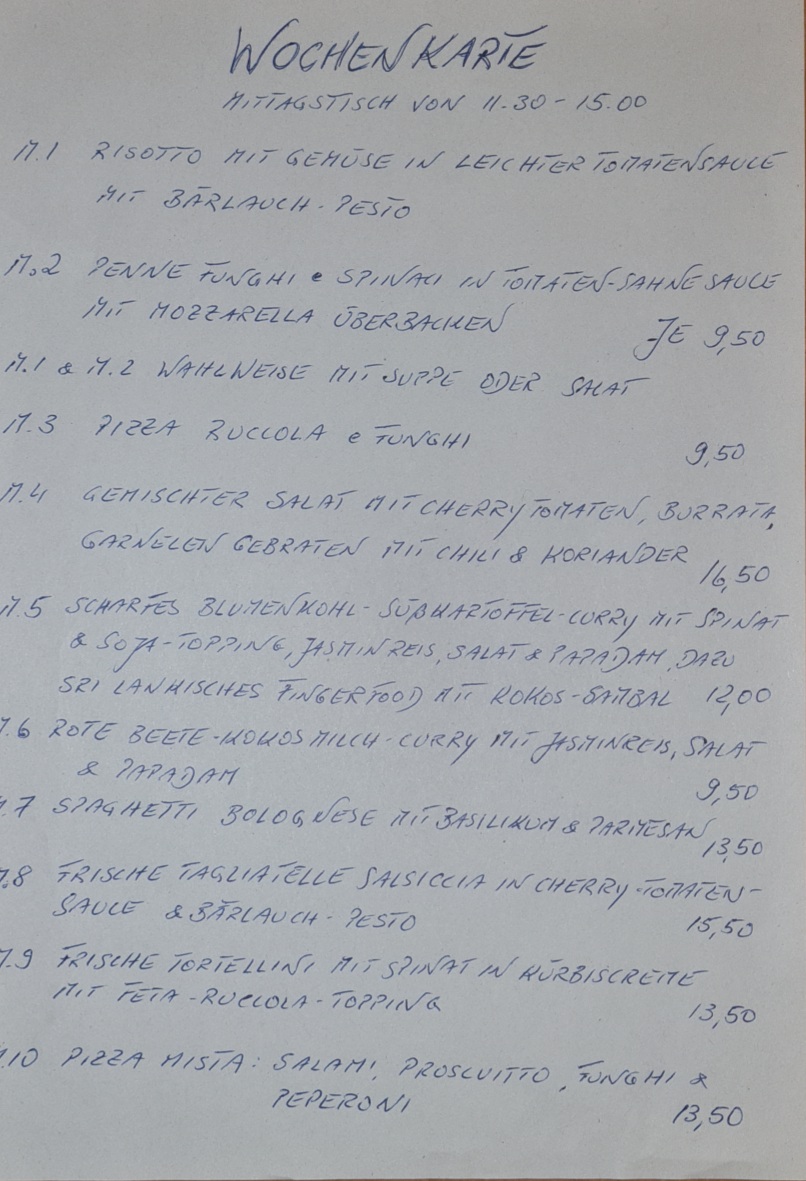 WOCHENKARTE
MITTAGSTISCH VON 11.30-15.00
M.1 RISOTTO MIT GEMÜSE IN LEICHTER TOMATENSAUCE
MIT BÄRLAUCH-PESTO
M.2 PENNE FUNGHI e SPINACI IN TOMATEN-SAHNESAUCE
MIT MOZZARELLA ÜBERBACKEN JE 9,50
M.1 & M.2 WAHLWEISE MIT SUPPE ODER SALAT
M.3 PIZZA RUCCOLA e FUNGHI 9,50
M.4 GEMISCHTER SALAT MIT CHERRYTOMATEN, BURRATA,
GARNELEN GEBRATEN MIT CHILI & KORIANDER 16,50
M.5 SCHARFES BLUMENKOHL-SÜßKARTOFFEL-CURRY MIT SPINAT
& SOJA-TOPPING, JASMINREIS, SALAT & PAPADAM, DAZU
SRI LANKISCHES FINGERFOOD MIT KOKOS-SAMBAL 12,00
M.6 ROTE BEETE-KOKOSMILCH-CURRY MIT JASMINREIS, SALAT
& PAPADAM 9,50
M.7 SPAGHETTI BOLOGNESE MIT BASILIKUM & PARMESAN 13,50
M.8 FRISCHE TAGLIATELLE SALSICCIA IN CHERRY-TOMATEN-
SAUCE & BÄRLAUCH-PESTO 15,50
M.9 FRISCHE TORTELLINI MIT SPINAT IN KÜRBISCREME
MIT FETA-RUCCOLA-TOPPING 13,50
M.10 PIZZA MISTA: SALAMI, PROSCUITTO, FUNGHI &
PEPERONI 13,50